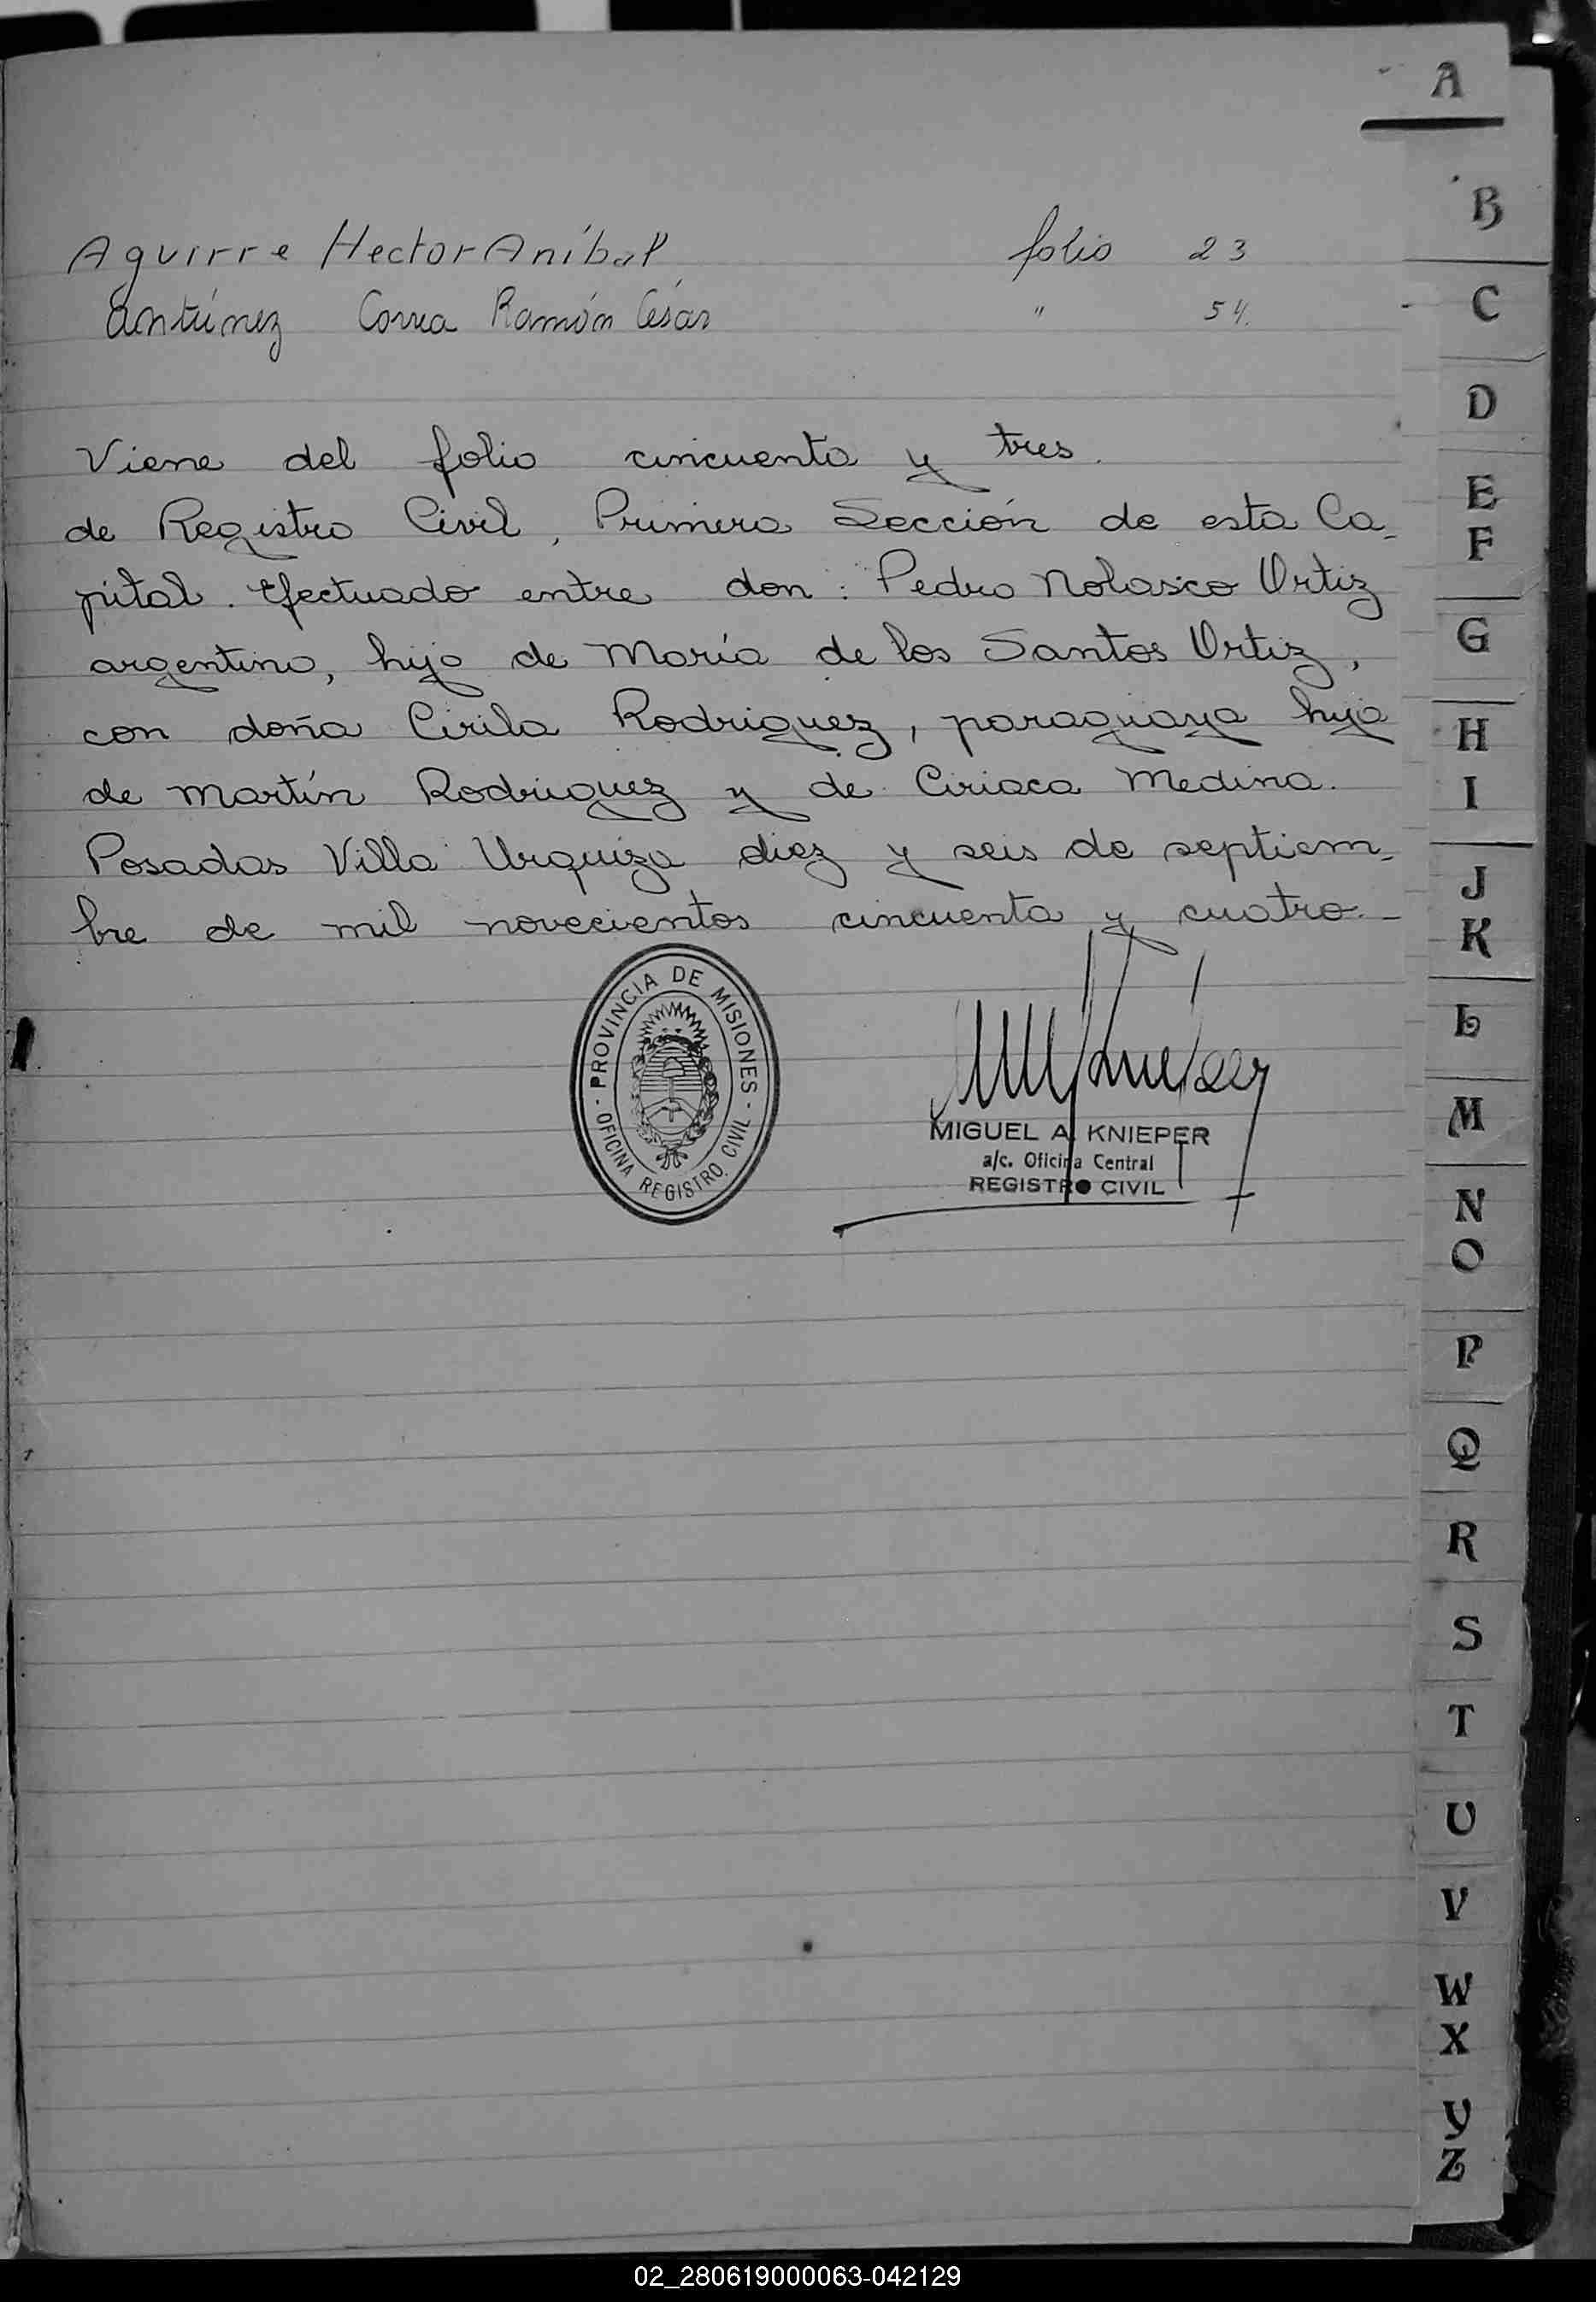 A
Aguirre Hector Aníbal folio 23
Antúnez Correa Ramón César " 54.
Viene del folio cincuenta y tres.
de Registro Civil, Primera Sección de esta Ca-
pital. Efectuado entre don: Pedro Nolasco Ortiz
argentino, hijo de María de los Santos Ortiz,
con doña Cirila Rodriguez, paraguaya hija
de Martín Rodriguez y de Ciriaca Medina.
Posadas Villa Urquiza diez y seis de septiem-
bre de mil novecientos cincuenta y cuatro.-
- PROVINCIA DE MISIONES -
OFICINA REGISTRO CIVIL
MIGUEL A. KNIEPER
a/c. Oficina Central
REGISTRO CIVIL
B
C
D
E
F
G
H
I
J
K
L
M
N
O
P
Q
R
S
T
U
V
W
X
Y
Z
02_280619000063-042129